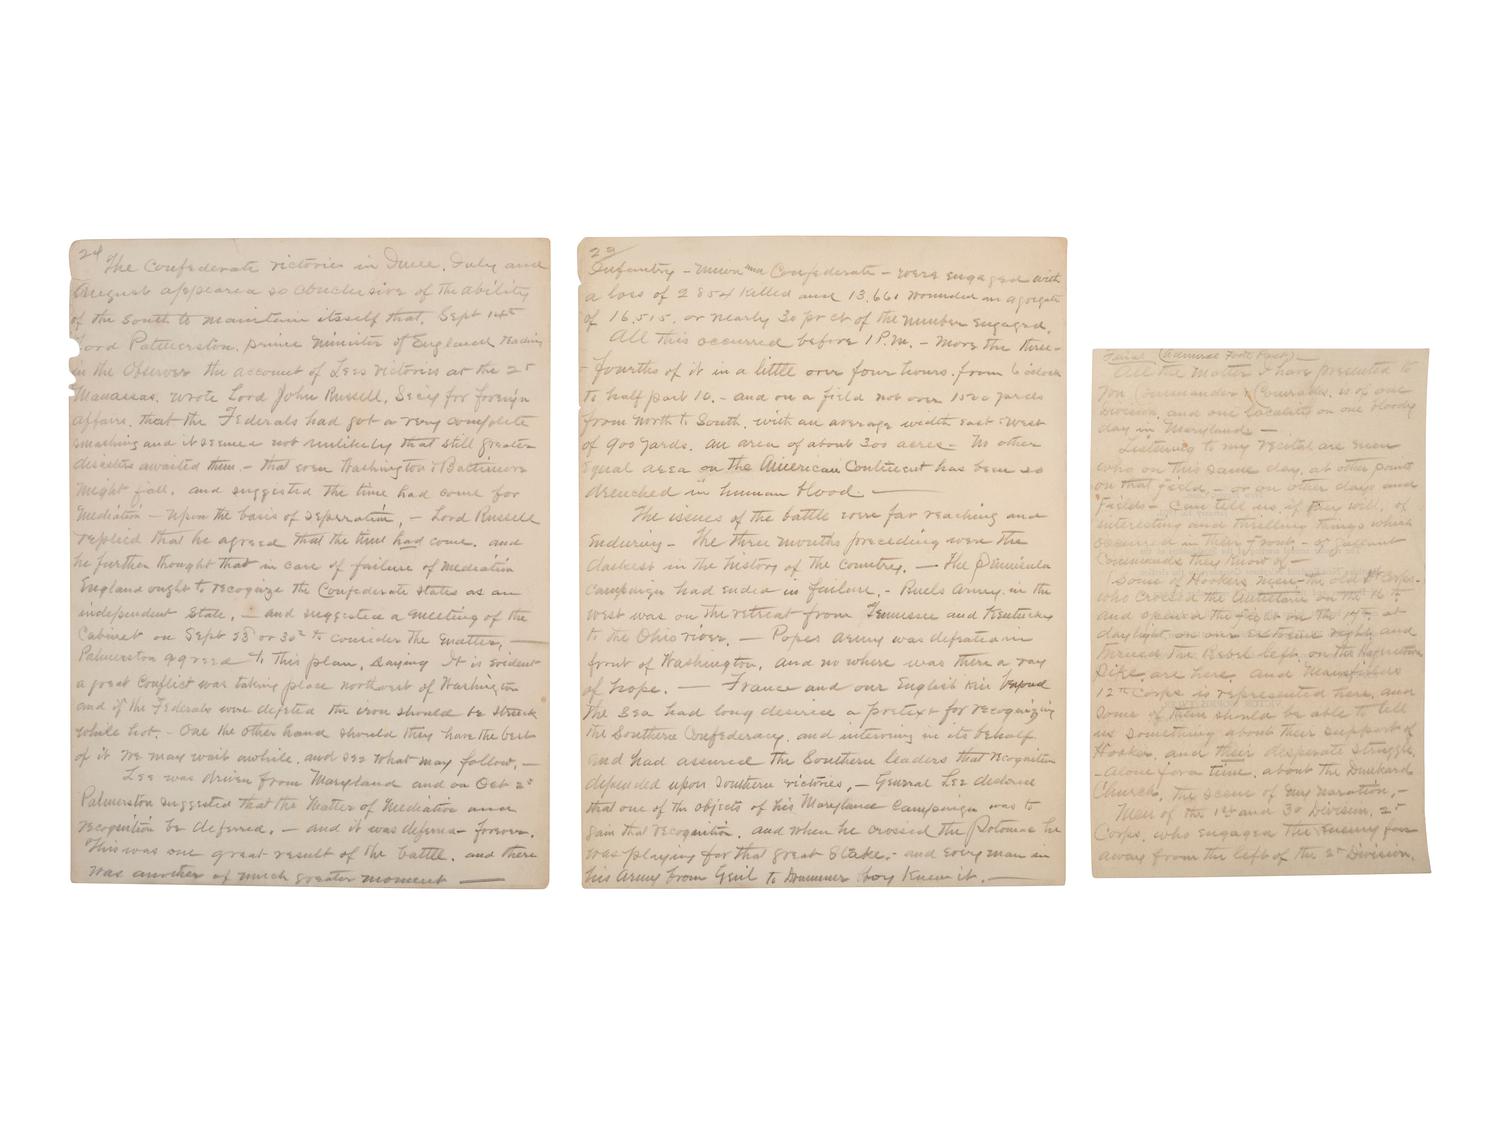 24
The Confederate victories in June, July and
August appeared so conclusive of the ability
of the South to maintain itself that, Sept 14th
Lord Palmerston, prime Minister of England reading
in the Observer the account of Lees victories at the 2d
Manassas, wrote Lord John Russell, Secty for foreign
affairs, that the Federals had got a very complete
smashing and it seemed not unlikely that still greater
disasters awaited them, - that even Washington & Baltimore
might fall, and suggested the time had come for
Mediation - upon the basis of seperation, - Lord Russell
replied that he agreed that the time had come, and
he further thought that in case of failure of mediation
England ought to recognize the Confederate States as an
independent State, - and suggested a meeting of the
Cabinet on Sept 28 or 30th to consider the matter, -
Palmerston agreed to this plan, saying It is evident
a great Conflict was taking place northwest of Washington
and if the Federals were defeated the iron should be struck
while hot, - One the other hand should they have the best
of it we may wait awhile and see what may follow, -
Lee was driven from Maryland and on Oct 2d
Palmerston suggested that the Matter of Mediation and
recognition be deferred, - and it was deferred - forever.
This was one great result of the battle, and there
was another of much greater moment -
23
Infantry - Union and Confederate - were engaged with
a loss of 2 854 killed and 13,661 wounded an agregate
of 16,515, or nearly 30 pr ct of the number engaged.
All this occurred before 1 P.M. - More the three-
- fourths of it in a little over four hours, from 6 oclock
to half past 10, - and on a field not over 1500 yards
from North to South, with an average width east & West
of 900 yards, an area of about 300 acres - No other
equal area on the American Continent has been so
drenched in human blood. -
The issues of the battle were far reaching and
Enduring - The three months preceding were the
darkest in the history of the Country. - The Peninsula
Campaign had ended in failure, - Buels Army in the
west was on the retreat from Tennessee and Kentucky
to the Ohio river, - Popes army was defeated in
front of Washington, and no where was there a ray
of hope. - France and our English kin beyond
the Sea had long desired a pretext for recognizing
the Southern Confederacy, and intervening in its behalf
and had assured the Southern leaders that recognition
depended upon Southern victories, - General Lee declared
that one of the objects of his Maryland Campaign was to
gain that recognition, and when he crossed the Potomac he
was playing for that great Stake, - and every man in
his Army from Genl to Drummer boy knew it. -
(Admiral Foote Post) -
All the matter I have presented to
you Commander & Comrades, is of one
Division, and one locality on one bloody
day in Maryland -
Listening to my recital are men
who on this same day, at other points
on that field, - or on other days and
fields - can tell us, if they will, of
interesting and thrilling things which
occurred in their front - of gallant
Commands they know of -
Some of Hookers men - the old 1st Corps -
who crossed the Antietam on the 16th
and opened the fight on the 17th, at
daylight, on our extreme right, and
turned the Rebel left, on the Hagerstown
Pike, are here, and Mansfields
12th Corps is represented here, and
some of them should be able to tell
us something about their support of
Hooker, and their desperate struggle,
- Alone for a time, about the Dunkard
Church, the scene of my naration, -
Men of the 1st and 3d Division, 2d
Corps, who engaged the enemy far
away from the left of the 2d Division,